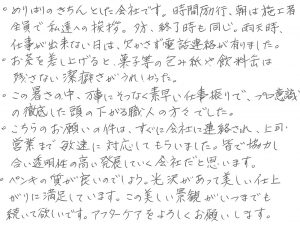 ○めりはりのきちんとした会社です。時間励行、朝は施工者
全員で私達への挨拶。夕方、終了時も同じ。雨天時、
仕事が出来ない日は、欠かさず電話連絡が有りました。
○お茶を差し上げると、菓子等の包み紙や飲料缶は
残さない潔癖さがうれしかった。
○この暑さの中、万事にそつなく素早い仕事振りで、プロ意識
の徹底した頭の下がる職人の方々でした。
○こちらのお願いの件は、すぐに会社に連絡され、上司・
営業まで敏速に対応してもらいました。皆で協力し
合い透明性の高い発展していく会社だと思います。
○ペンキの質が良いのでしょう。光沢があって美しい仕上
がりに満足しています。この美しい景観がいつまでも
続いて欲しいです。アフターケアをよろしくお願いします。